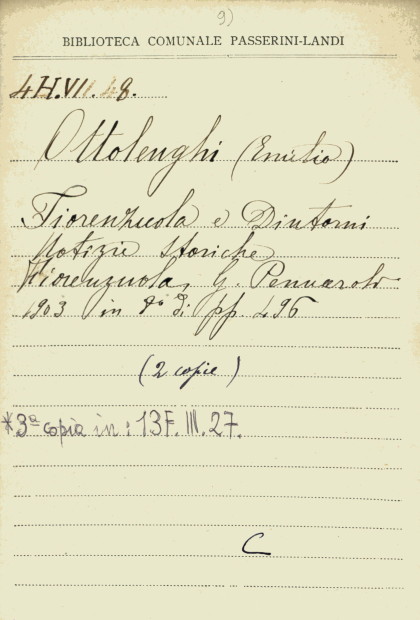 9)
BIBLIOTECA COMUNALE PASSERINI-LANDI
4H.VII.48.
Ottolenghi (Emilio)
Fiorenzuola e Dintorni
Notizie storiche
Fiorenzuola, G. Pennaroli
1903 in 8° pp. 496
(2 copie)
*3ª copia in: 13F.III.27.
C